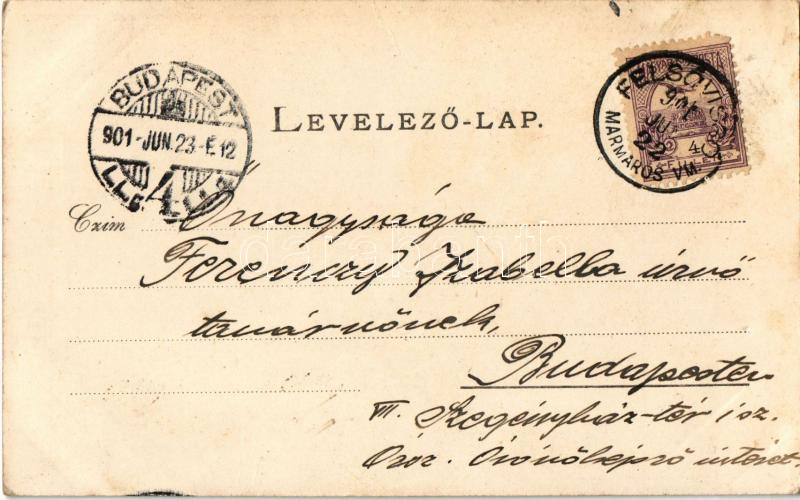 BUDAPEST
901-JUN.23-É12
4
LEVELEZŐ-LAP.
FELSŐVISSÓ
901
JUN
22
MÁRMAROS VM.
Czim Őnagysága
Ferenczy Izabella úrnő
tanárnőnek,
Budapesten
VII. Szegényház-tér 1 sz.
Orsz. Óvónőképző intézet